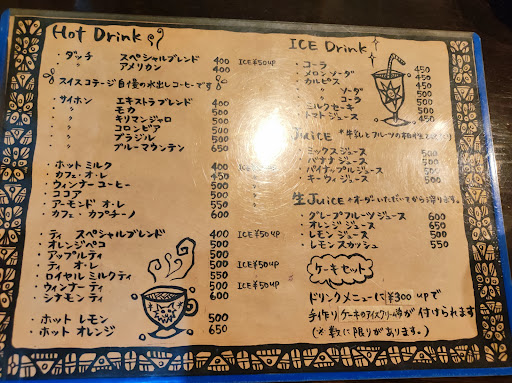 Hot Drink
・ダッチ スペシャルブレンド 400 ICE¥50UP
〃 アメリカン 400
スイスコテージ自慢の水出しコーヒーです
・サイホン エキストラブレンド 400
〃 モカ 500
〃 キリマンジャロ 500
〃 コロンビア 500
〃 ブラジル 500
〃 ブルーマウンテン 650
・ホットミルク 400
・カフェ・オ・レ 450
・ウィンナーコーヒー 500
・ココア 500
・アーモンド オ・レ 550
・カフェ・カプチーノ 600
・ティ スペシャルブレンド 400 ICE¥50UP
・オレンジペコ 500
・アップルティ 500
・ティ オ・レ 500 ICE¥50UP
・ロイヤルミルクティ 550
・ウィンナーティ 500 ICE¥50UP
・シナモンティ 600
・ホット レモン 500
・ホット オレンジ 650
ICE Drink
・コーラ 450
・メロンソーダ 450
・カルピス 450
〃 ソーダ
〃 コーラ
・ミルクセーキ
・トマトジュース 450
Juice *牛乳とフルーツの
・ミックスジュース 500
・バナナジュース 500
・パイナップルジュース 500
・キーウィジュース 500
生Juice *オーダーいただいてから搾ります。
・グレープフルーツジュース 600
・オレンジジュース 650
・レモンジュース 500
・レモンスカッシュ 550
ケーキセット
ドリンクメニューに¥300upで
手作りケーキのアイスクリーム添が付けられます
(*数に限りがあります。)